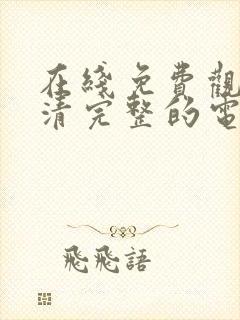 在綫免費觀
清完整的電
飛飛語